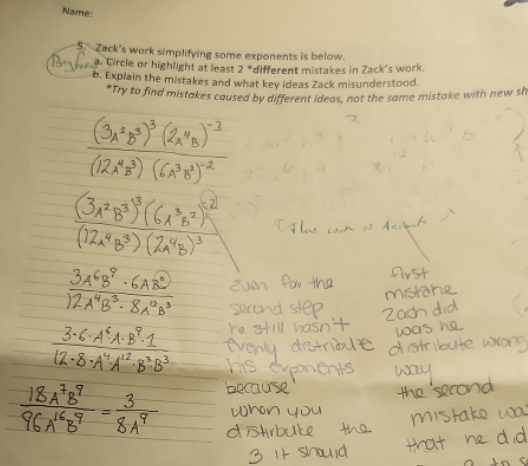 Name:
5. Zack's work simplifying some exponents is below.
a. Circle or highlight at least 2 *different mistakes in Zack's work.
b. Explain the mistakes and what key ideas Zack misunderstood.
*Try to find mistakes caused by different ideas, not the same mistake with new sh
(3A²B³)³ (2A⁴B)⁻³
(12A⁴B³) (6A³B²)⁻²
(3A²B³)³(6A³B²)⁻²
(12A⁴B³) (2A⁴B)³
3A⁶B⁹ · 6AB⁰
12A⁴B³ · 8A¹²B³
3·6·A⁶·A·B⁹·1
12·8·A⁴·A¹²·B³·B³
18A⁷B⁹ = 3
96A¹⁶B⁹ 8A⁹
Even for the
second step
he still hasn't
evenly distribute
his exponents
because
when you
distribute the
3 it should
first
mistake
Zach did
was he
distribute wrong
way
the second
mistake was
that he did